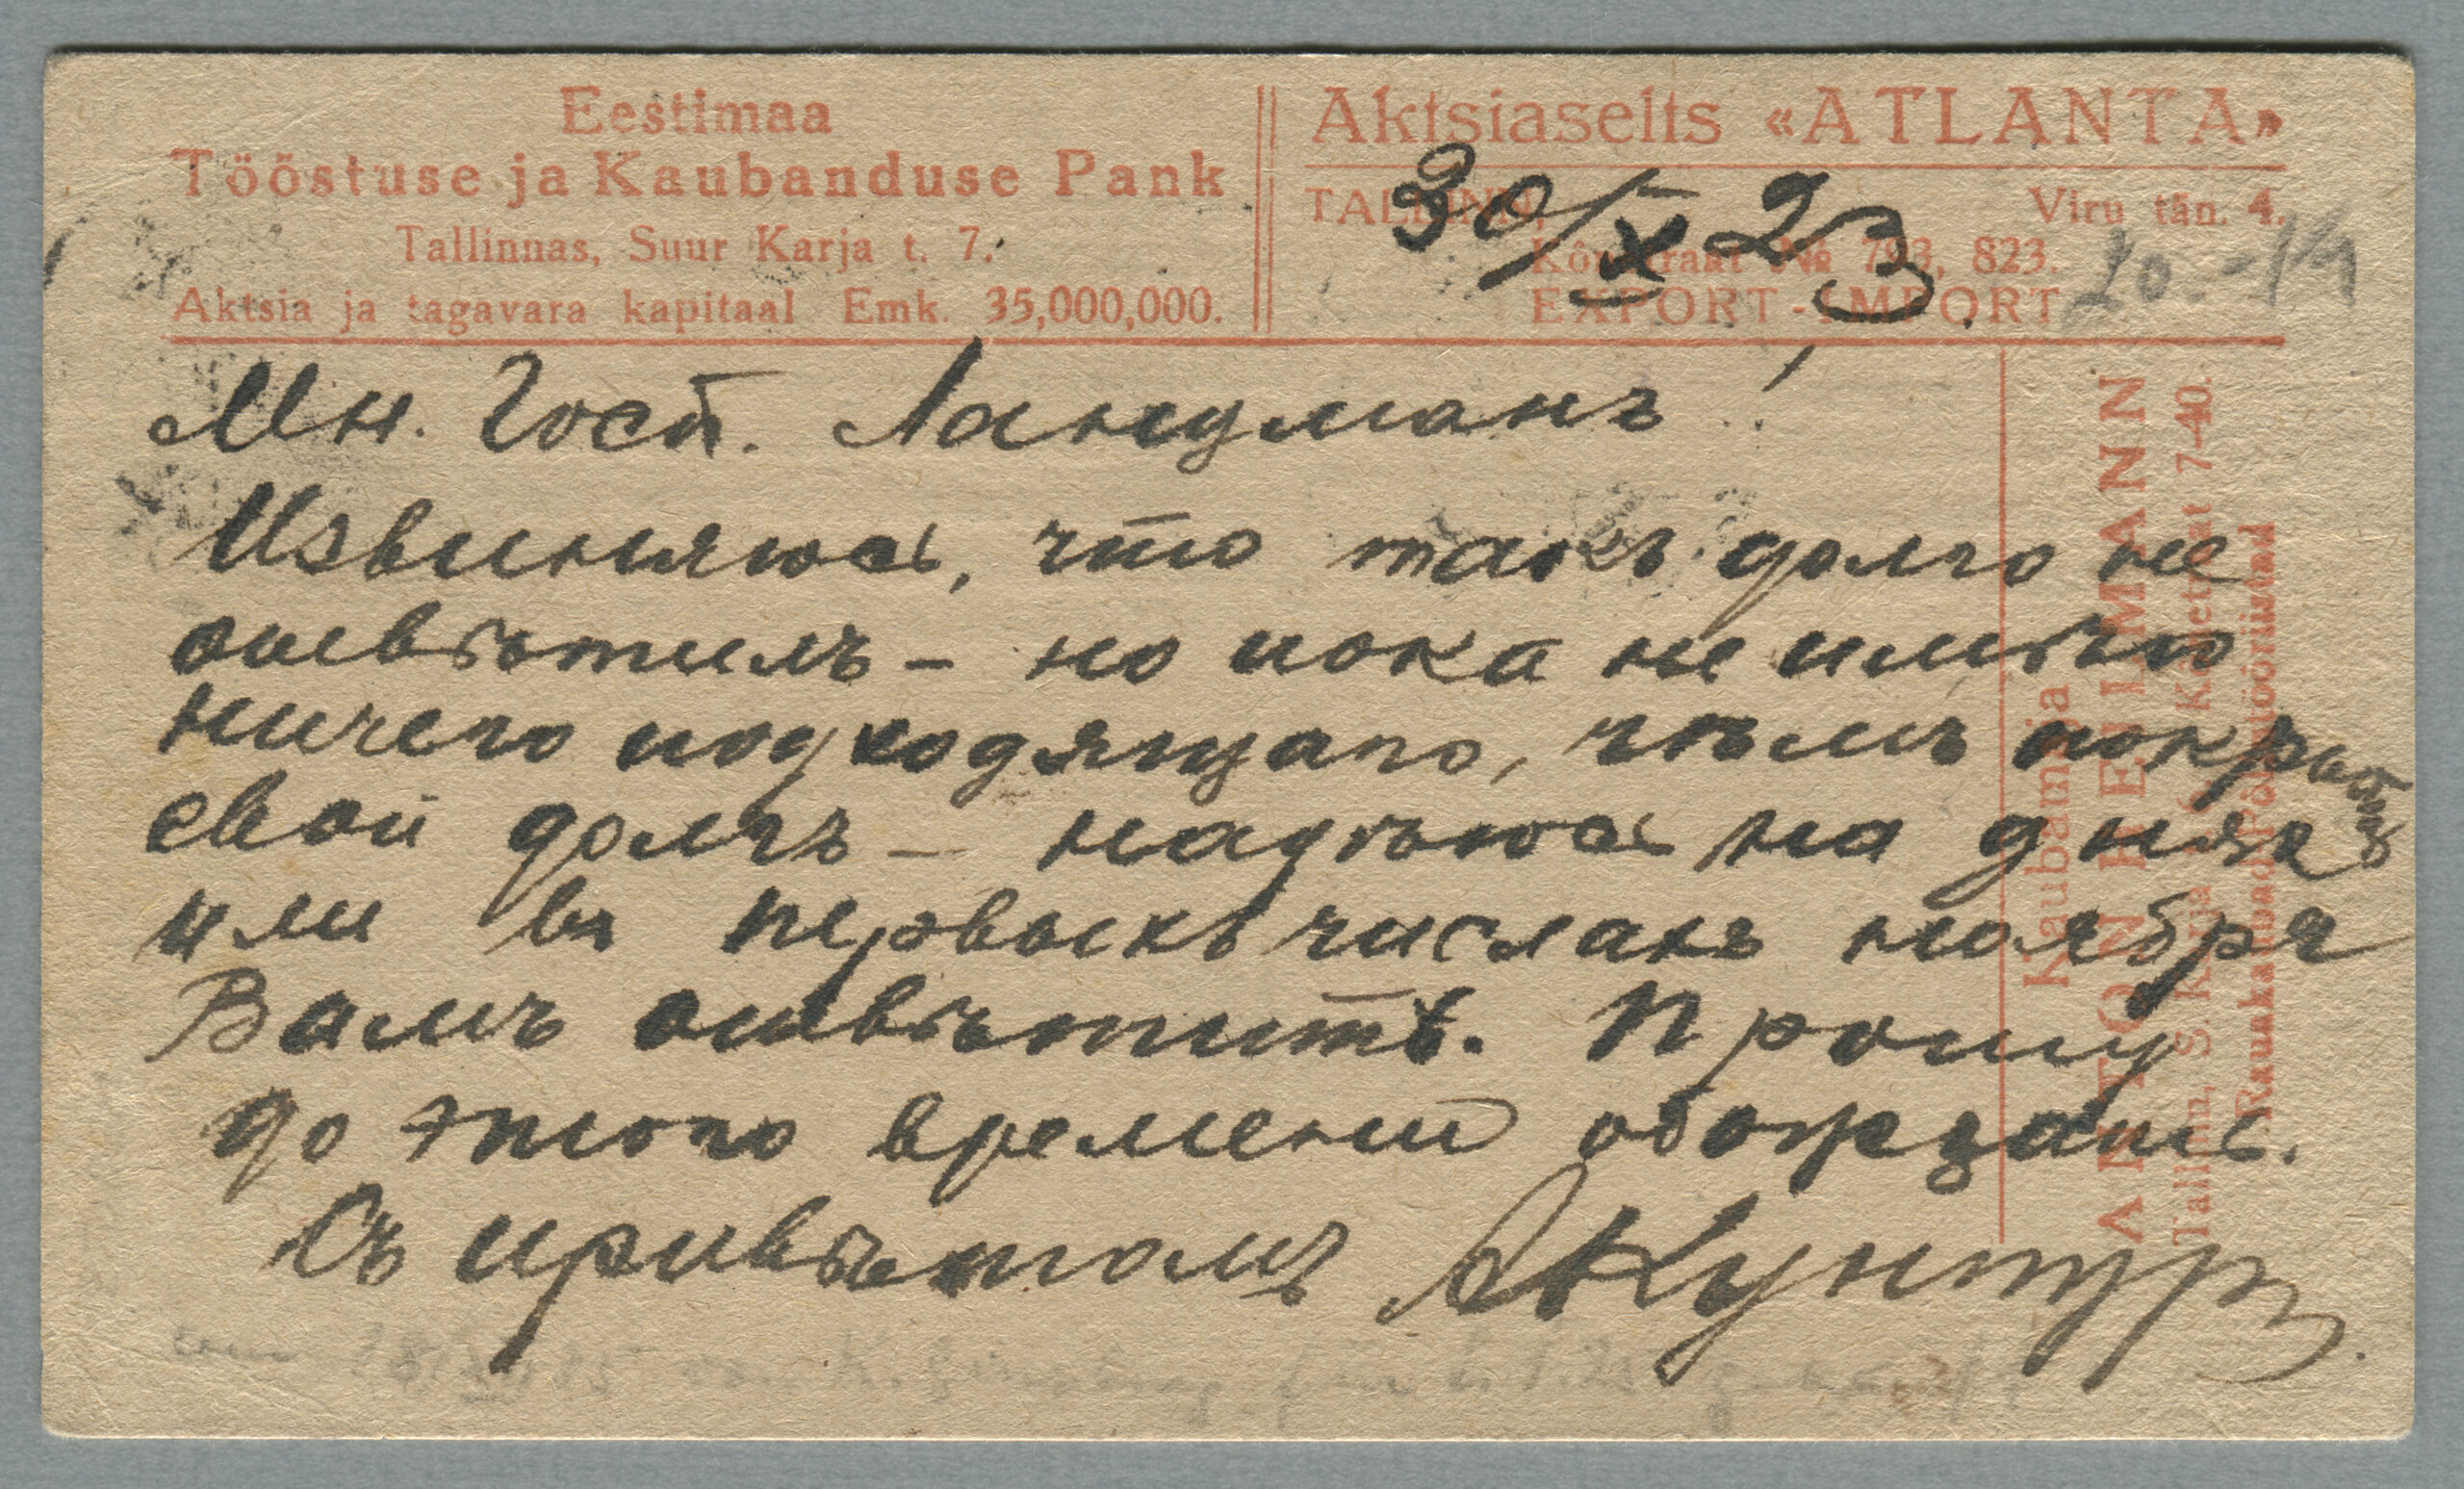 Eestimaa
Tööstuse ja Kaubanduse Pank
Tallinnas, Suur Karja t. 7.
Aktsia ja tagavara kapitaal Emk. 35,000,000.
Aktsiaselts «ATLANTA»
TALLINN, Viru tän. 4.
Kõnetraat № 793, 823.
EXPORT-IMPORT
30/X 23.
20.-
Мн. Госп.Ландманъ!
Извиняюсь, что такъ долго не
отвѣтилъ – но пока не имѣю
ничего подходящаго, чѣмъ покрыть
свой долгъ – надѣюсь на дняхъ
или въ первыхъ числахъ ноября
Вамъ отвѣтить. Прошу
до этого времени обождать.
Съ привѣтомъ АКунтуръ.
Kaubamaja
ANTON HEILMANN
Tallinn, S. Karja Kõnetraat 7-40.
Rauakaubad Põllutööriistad